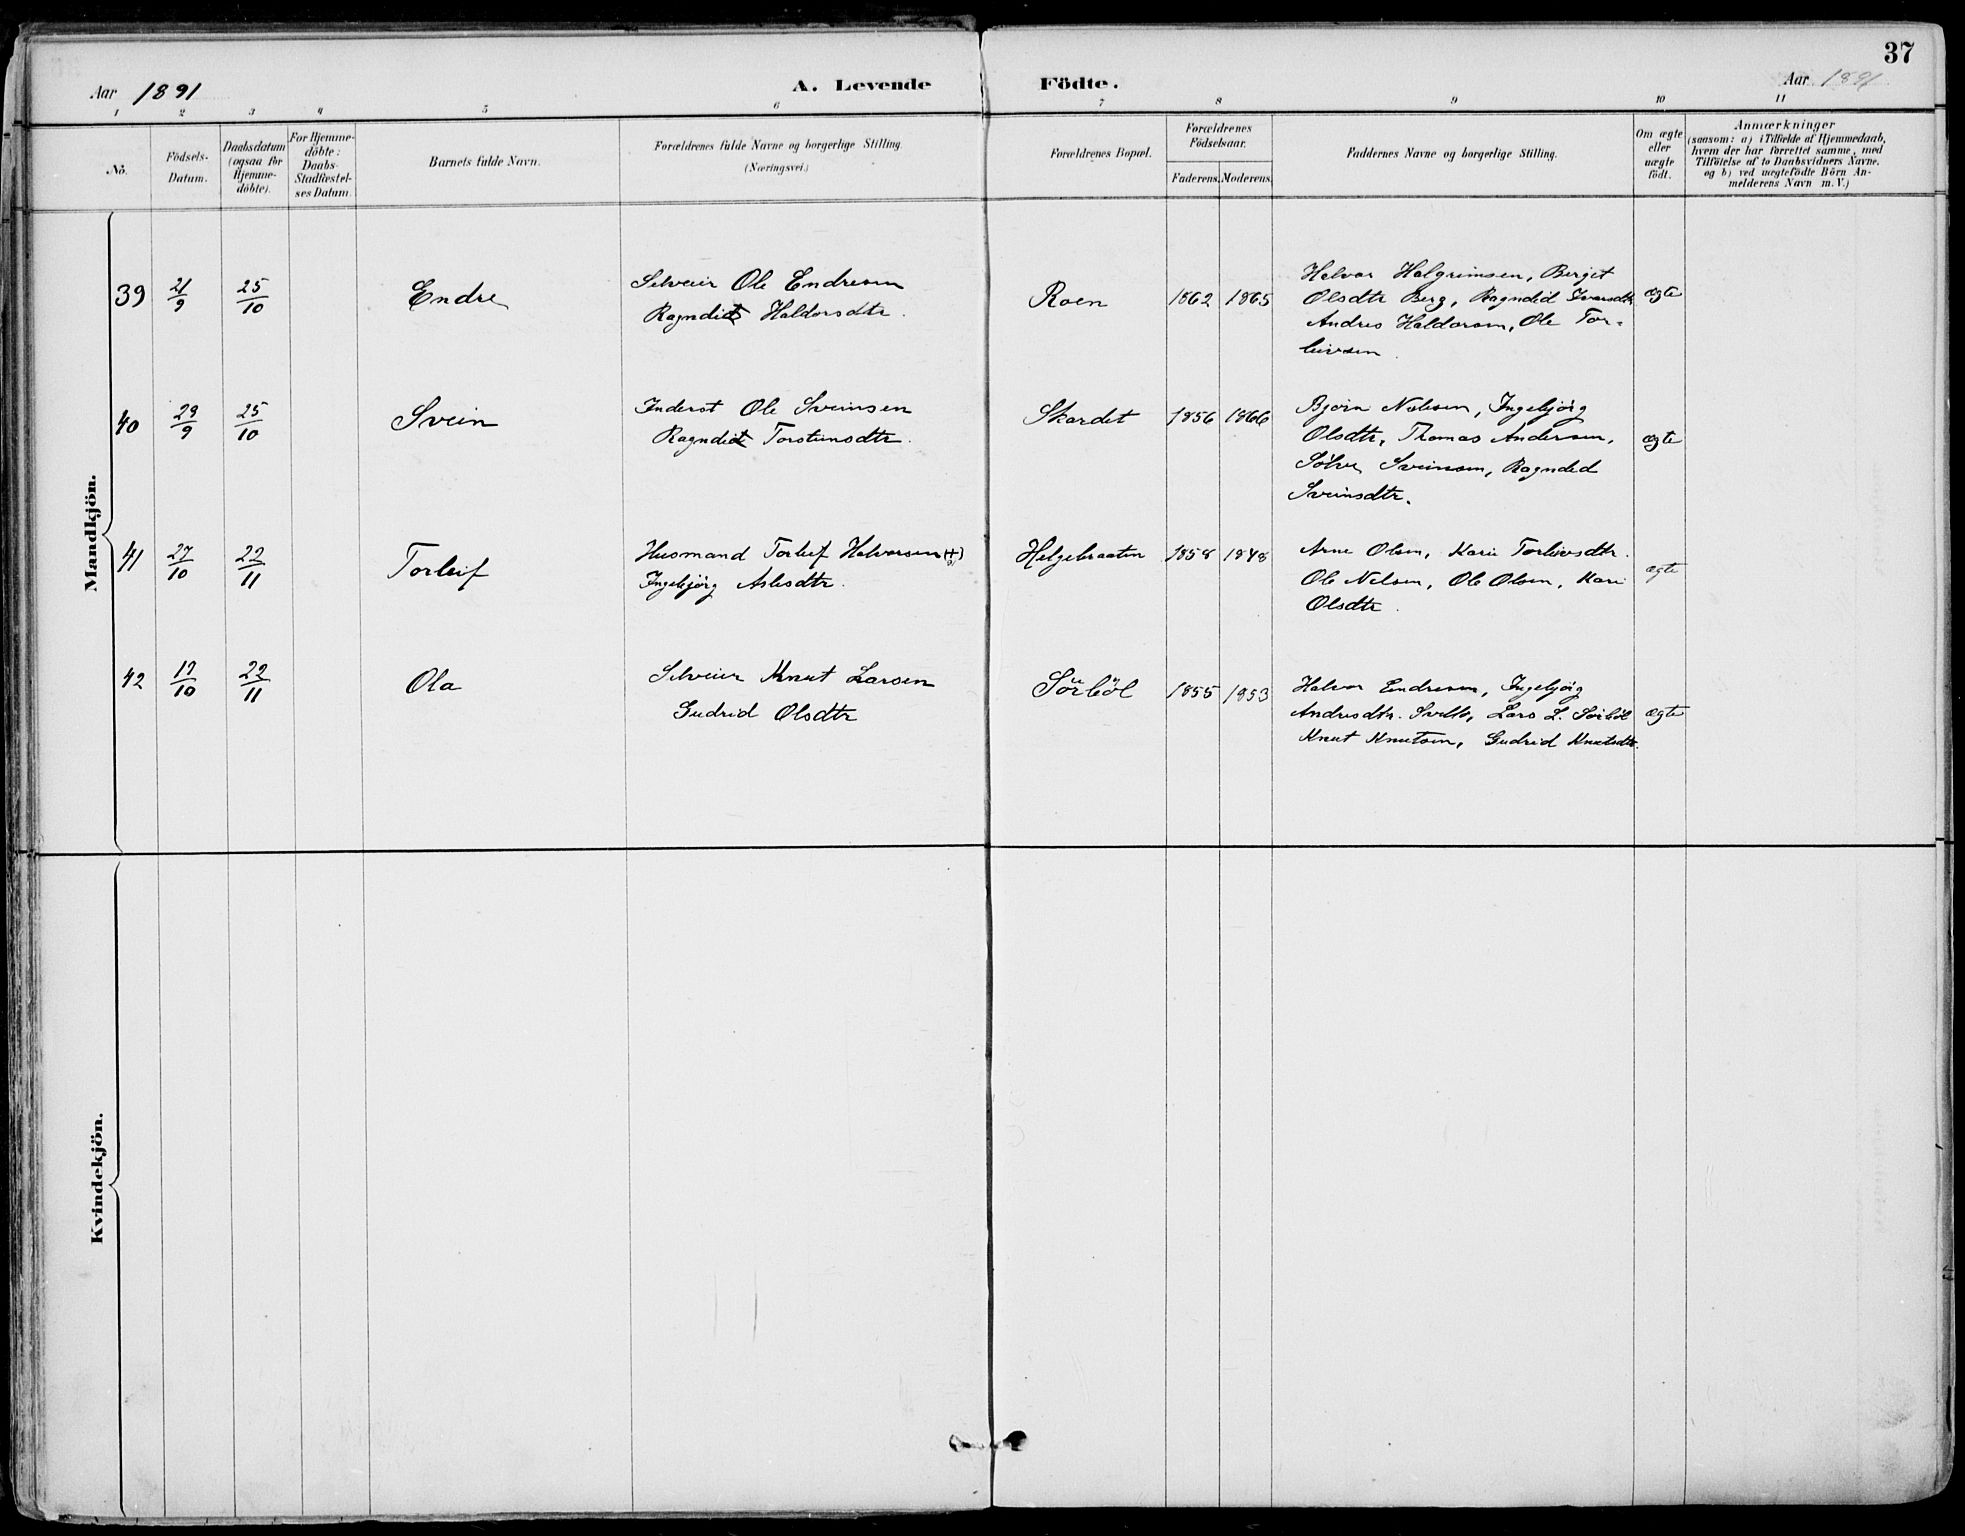 37
Aar 1891
A. Levende Födte.
Aar 1891
1 2 3 4 5 6 7 8 9 10 11
No.
Födsels-
Datum.
Daabsdatum
(ogsaa for
Hjemme-
döbte).
For Hjemme-
döbte:
Daabs-
Stadfæstel-
ses Datum.
Barnets fulde Navn.
Forældrenes fulde Navne og borgerlige Stilling
(Næringsvei.)
Forældrenes Bopæl.
Forældrenes
Födselsaar.
Faderens. Moderens.
Faddernes Navne og borgerlige Stilling.
Om ægte
eller
uægte
født.
Anmærkninger
(saasom: a) i Tilfælde af Hjemmedaab,
hvem der har forrettet samme, med
Tilföielse af to Daabsvidners Navne,
og b) ved uægtefödte Börn An-
melderens Navn m. V.)
Mandkjön.
39 21/9 25/10 Endre
Selveier Ole Endresen
Ragndid Haldorsdtr.
Roen 1862 1865
Halvor Halgrimsen, Berget
Olsdtr Berg, Ragndid Ivarsdtr
Andres Haldorsen, Ole Tor-
leivsen.
ægte
40 29/9 25/10 Svein
Inderst Ole Sveinsen
Ragndid Torsteinsdtr.
Skardet 1856 1866
Bjørn Nelsen, Ingebjörg
Olsdtr, Thomas Andersen,
Sölve Sveinsen, Ragndid
Sveinsdtr.
ægte
41 27/10 22/11 Torleif
Husmand Torleif Halvorsen (+)
Ingebjörg Aslesdtr.
Helgebraaten 1858 1848
Arne Olsen, Kari Torleivsdtr.
Ole Nelsen, Ole Olsen, Kari
Olsdtr.
ægte
42 17/10 22/11 Ola
Selveier Knut Larsen
Gudrid Olsdtr
Sörböl 1855 1853
Halvor Endresen, Ingebjörg
Andresdtr. Lars L. Sörböl
Knut Knutsen, Gudrid Knutsdtr.
ægte
Kvindekjön.